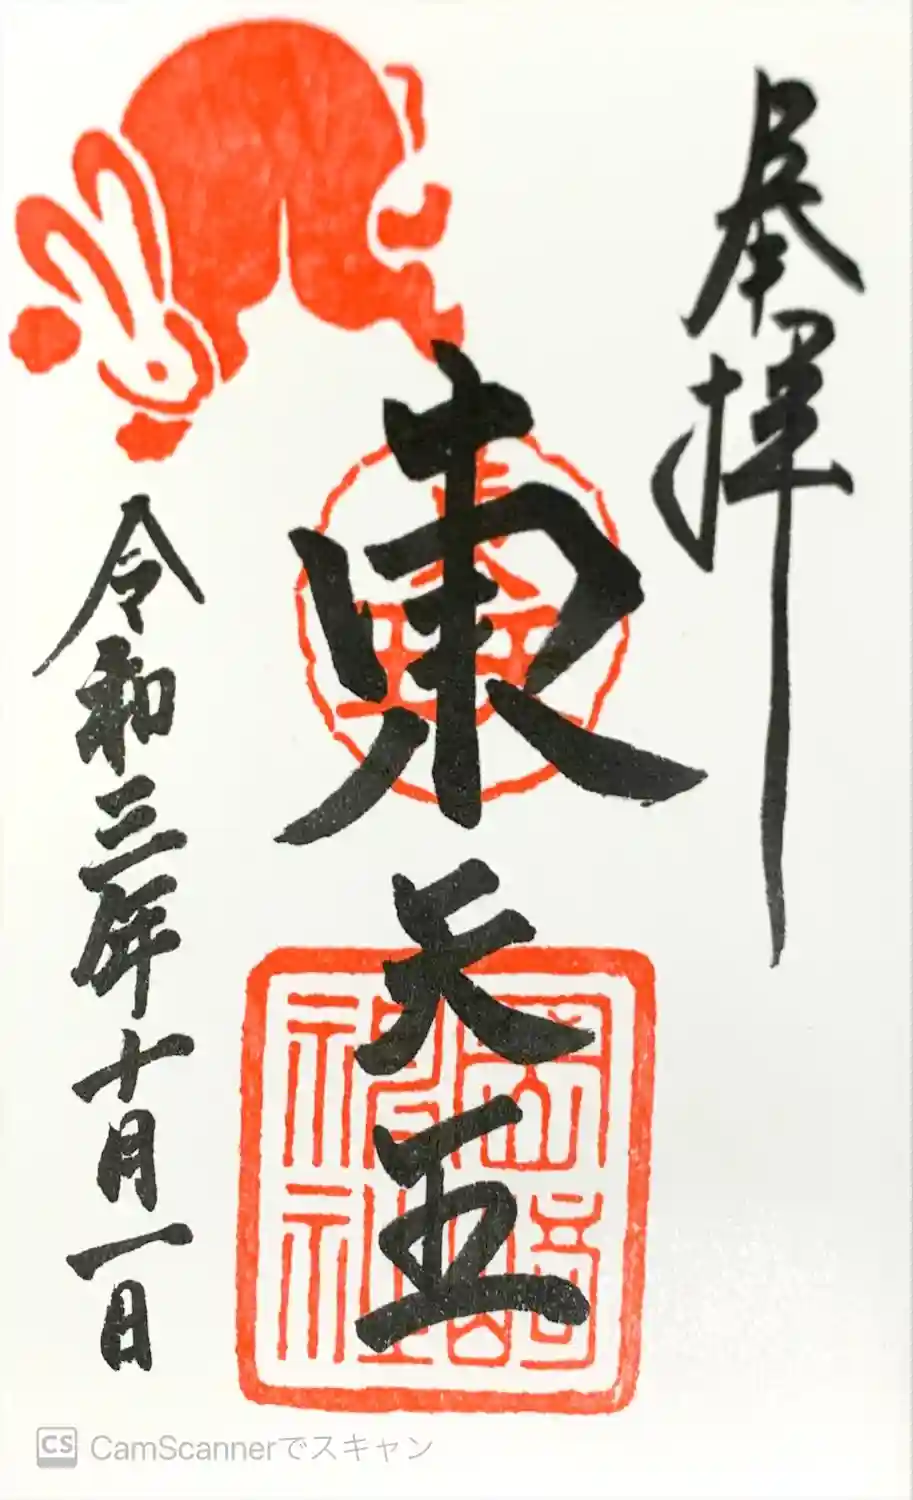 奉拝
東天王
岡崎神社
令和三年十月一日
CS CamScannerでスキャン